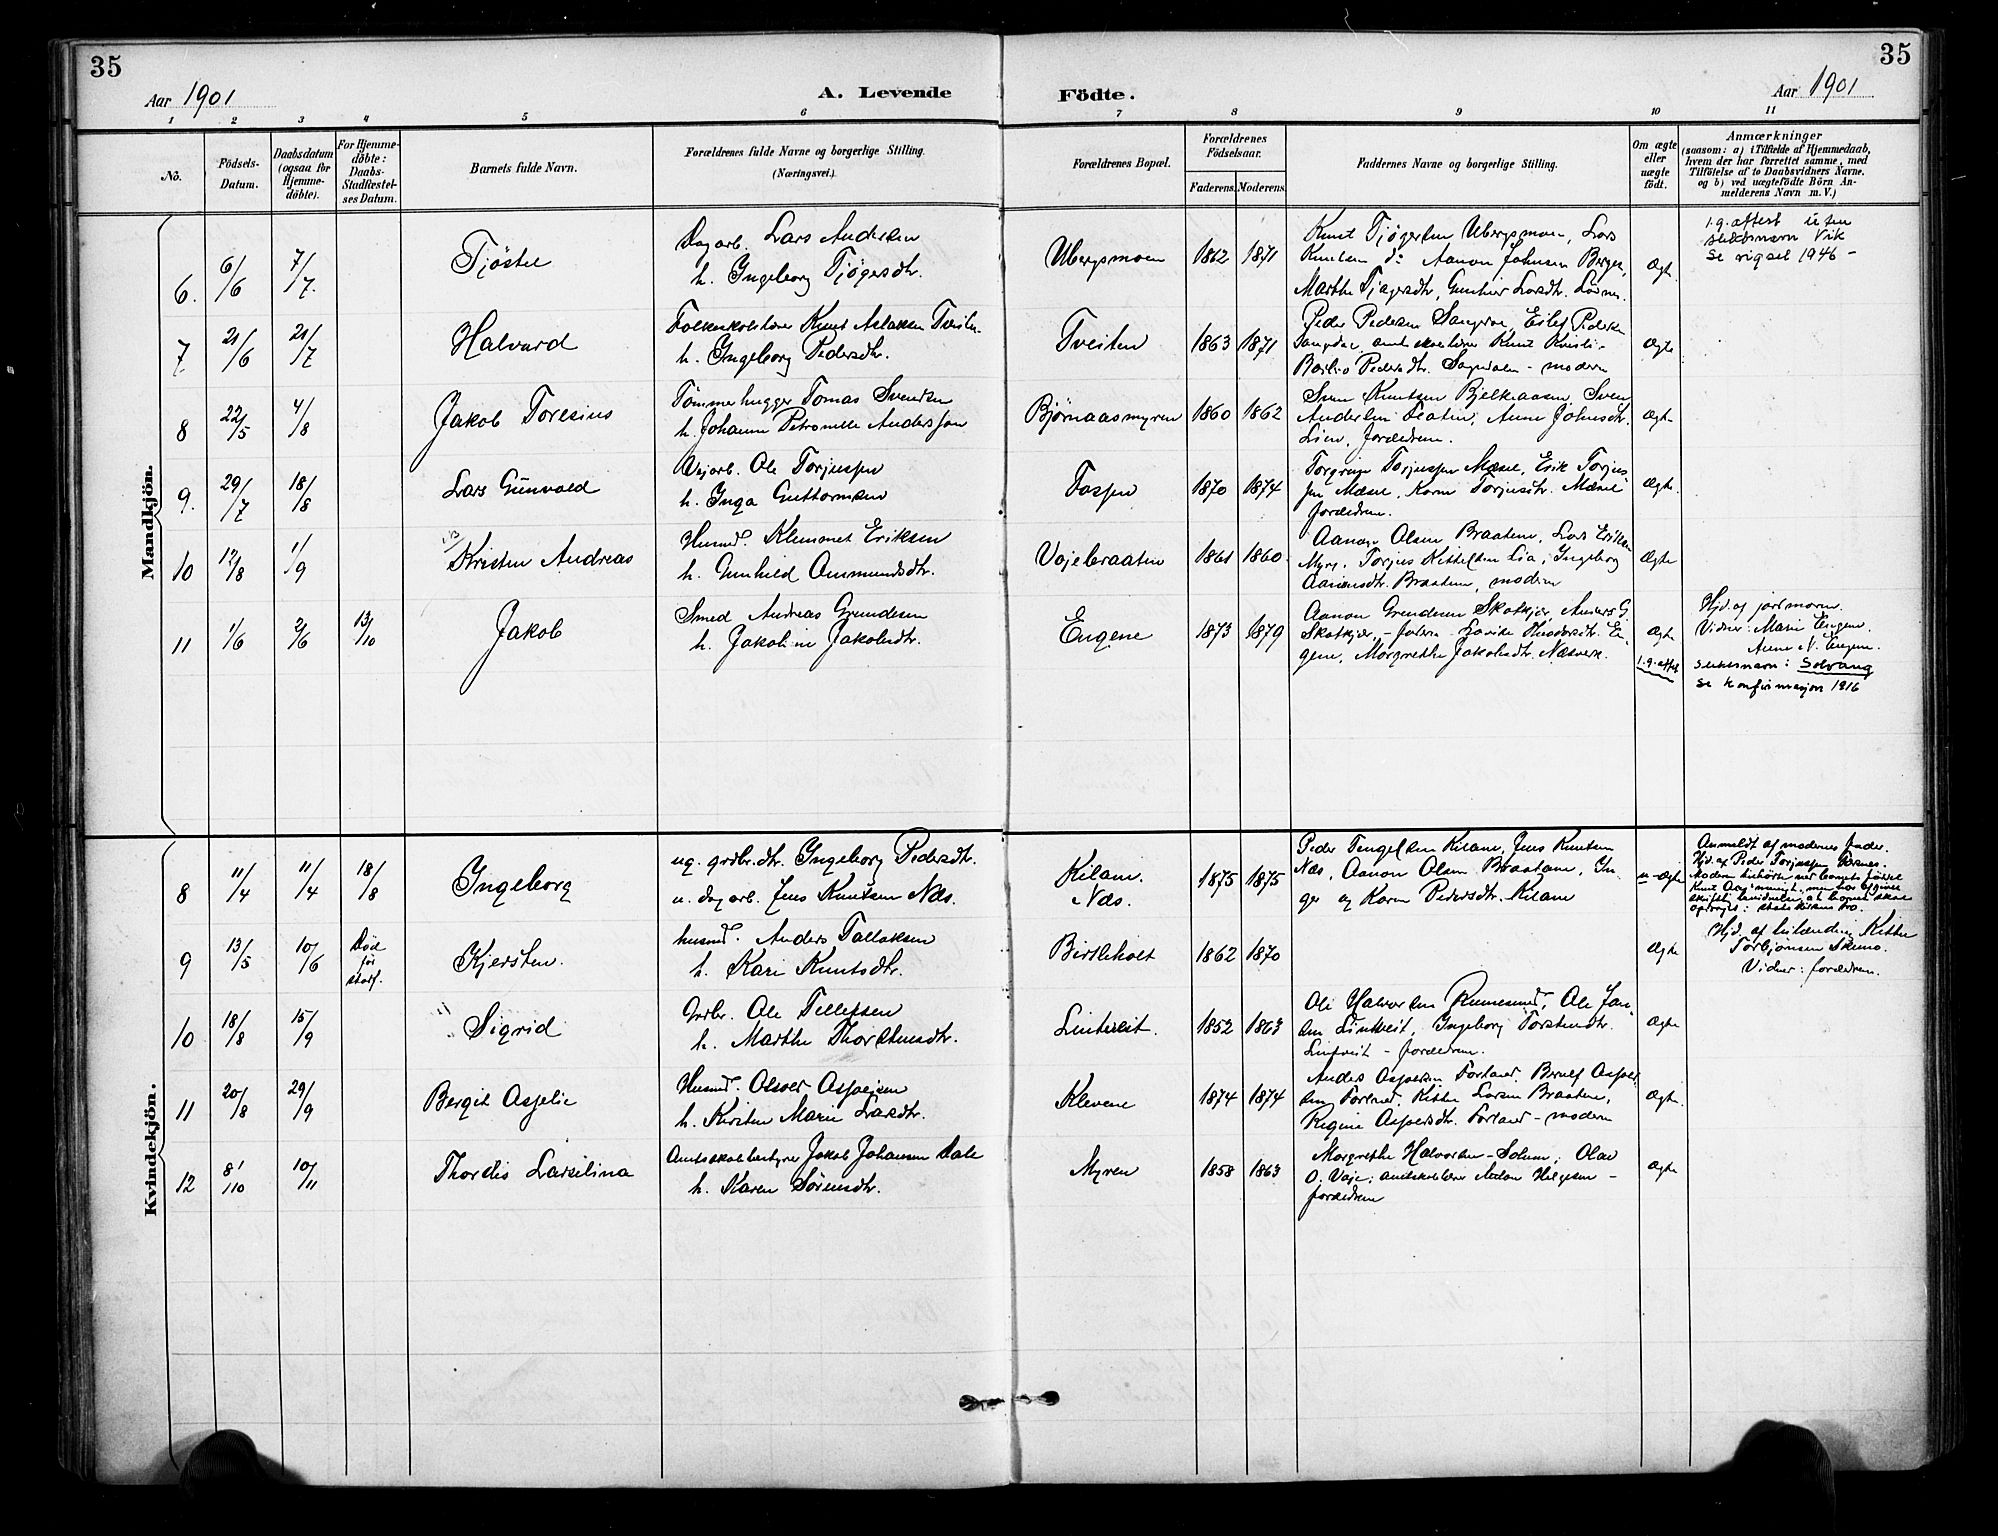 35
35
Aar 1901
A. Levende
Födte.
Aar 1901
1 2 3 4 5 6 7 8 9 10 11
No.
Födsels-
Datum.
Daabsdatum
(ogsaa for
Hjemme-
döbte).
For Hjemme-
döbte:
Daabs-
Stadfæstel-
ses Datum.
Barnets fulde Navn.
Forældrenes fulde Navne og borgerlige Stilling.
(Næringsvei.)
Forældrenes Bopæl.
Forældrenes
Födselsaar.
Faderens.
Moderens.
Faddernes Navne og borgerlige Stilling.
Om ægte
eller
uægte
födt.
Anmærkninger
(saasom: a) i Tilfælde af Hjemmedaab,
hvem der har forrettet samme, med
Tilföielse af to Daabsvidners Navne,
og b) ved uægtefödte Börn An-
melderens Navn m. V.)
Mandkjön.
6. 6/6 7/7. Tjöstel
Dagarb. Lars Andersen
h. Ingeborg Tjögersdtr.
Ubergsmoen 1862 1871
Knut Tjögersen Ubergsmoen, Lars
Knutsen do Aanon Johnsen Berge,
Marthe Tjøgersdtr, Gunhier Larsdtr.
Ægte
i.g. attest uten
slektsnavn Vik
Se vigsel 1946 -
7 21/6 21/7 Halvard
Folkeskolelærer Knut Aslaksen Tveiten
h. Ingeborg Pedersdtr.
Tveiten 1863 1871
Peder Pedersen Eilef Pedersen
amtsskolelærer Knut
Pedersdtr. - moderen
Ægte
8 22/5 4/8 Jakob Toresius
Tømmerhugger Tomas Svendsen
h. Johanne Petronelle Andersson
Bjørnaasmyren 1860 1862
Sven Knutsen Bjelkaasen, Sven
Andersen Anne Johnsdtr.
Lien, forældrene.
Ægte
9. 29/7 18/8 Lars Gunvald
Ole Torjussen
h. Inga Guttormsen
Fossen 1870 1874
Torjussen Mæsel, Erik Torjus-
sen Mæsel, Karen Torjusdtr. Mæsel
forældrene.
Ægte.
10 17/8 1/9 Kristen Andreas
Husmd. Klemmet Eriksen
h. Gunhild Ammundsdtr.
Vajebraaten 1861 1860
Aanon Olsen Braatene, Lars Eriksen
Myre, Torjus Kittelsen Lia, Ingeborg
Aanonsdtr. Braatene, moderen
Ægte
11 1/6 2/6 13/10 Jakob
Smed Andreas Grundesen
h. Jakobine Jakobsdtr.
Engene 1873 1879
Aanon Grundesen Skatkjær, Anders G.
Skatkjær, - faderen - Lovise Theodorsdtr. En-
gene, Margrethe Jakobsdtr. Næsverk.
Ægte
i.g. attst
Hjd. af jordmoren.
Vidner: Marie Engene.
Anne N. Engene.
slektsnavn: Solvang
se konfirmasjon 1916
Kvindekjön.
8 11/4 11/4 18/8 Ingeborg
ug. grdbr.dtr. Ingeborg Pedersdtr.
u. dagarb. Jens Knutsen Næs.
Kilane
Næs. 1875 1875
Peder Tengelsen Kilane, Jens Knutsen
Næs, Aanon Olsen Braatene, In-
ger og Karen Pedersdtr. Kilane
u-ægte
Anmeldt af moderens fader.
Hjd. af Peder Torjussen
9 13/5 10/6 Død
før
stadf. Kjersten.
husmd. Anders Tallaksen
h. Kari Knutsdtr.
Birteholt 1862 1870
Ægte
Hjd. af
Torbjørnsen
Vidner: forældrene.
10 18/8 15/9 Sigrid
Grdbr. Ole Tellefsen
h. Marthe Thorstensdtr.
Lintveit. 1852 1863
Ole Halvorsen Ole Jan-
sen Lintveit, Ingeborg Torstensdtr.
Lintveit - forældrene.
Ægte
11 20/8 29/9 Bergit Aspelie
Husmd. Olaves Aspersen
h. Kirsten Marie Larsdtr.
Klevene 1874 1874
Anders Aspersen Torland, Bernt Asper-
sen Torland, Kitte Larsen Braatene,
Regine Aspersdtr. Torland - moderen
Ægte.
12 8/10 10/11 Thordis Larselina
Amtsskolebestyrer Jakob Johansen Dale
h. Karen Sørensdtr.
Myren 1858 1863
Margrethe Halvorsen - Solem, Olav
O. Vaje, amtskolelærer Anton Helgesen -
forældrene
Ægte